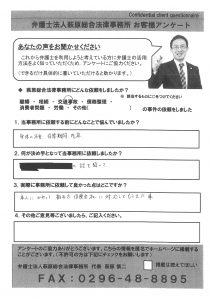 Confidential client questionnaire
弁護士法人萩原総合法律事務所 お客様アンケート
あなたの声をお聞かせください
これから弁護士を利用しようと考えている方に弁護士の活用
方法をよく知っていただくため、アンケートにご協力ください。
(できるだけ具体的に書いていただけると助かります。)
◆ 萩原総合法律事務所にどんな依頼をしましたか?
※ 該当するものに○をつけてください
離婚 ・ 相続 ・ 交通事故 ・ 債務整理 ・
消費者問題 ・ 労働 ・ その他( )の事件を依頼をしました
1. 当事務所に依頼する前にどんなことで悩んでいましたか?
2. 何が決め手となって当事務所に依頼しましたか?
3. 実際に事務所に依頼して良かった点はどこですか?
4. その他ご意見等ございましたら、ご記入ください。
アンケートのご協力ありがとうございます。こちらの情報を匿名でホームページに掲載する
ことがございます。(不許可の方は下記にチェックをお願いします)
弁護士法人萩原総合法律事務所 代表 萩原 慎二 掲載は控えてほしい
FAX:0296-48-8895